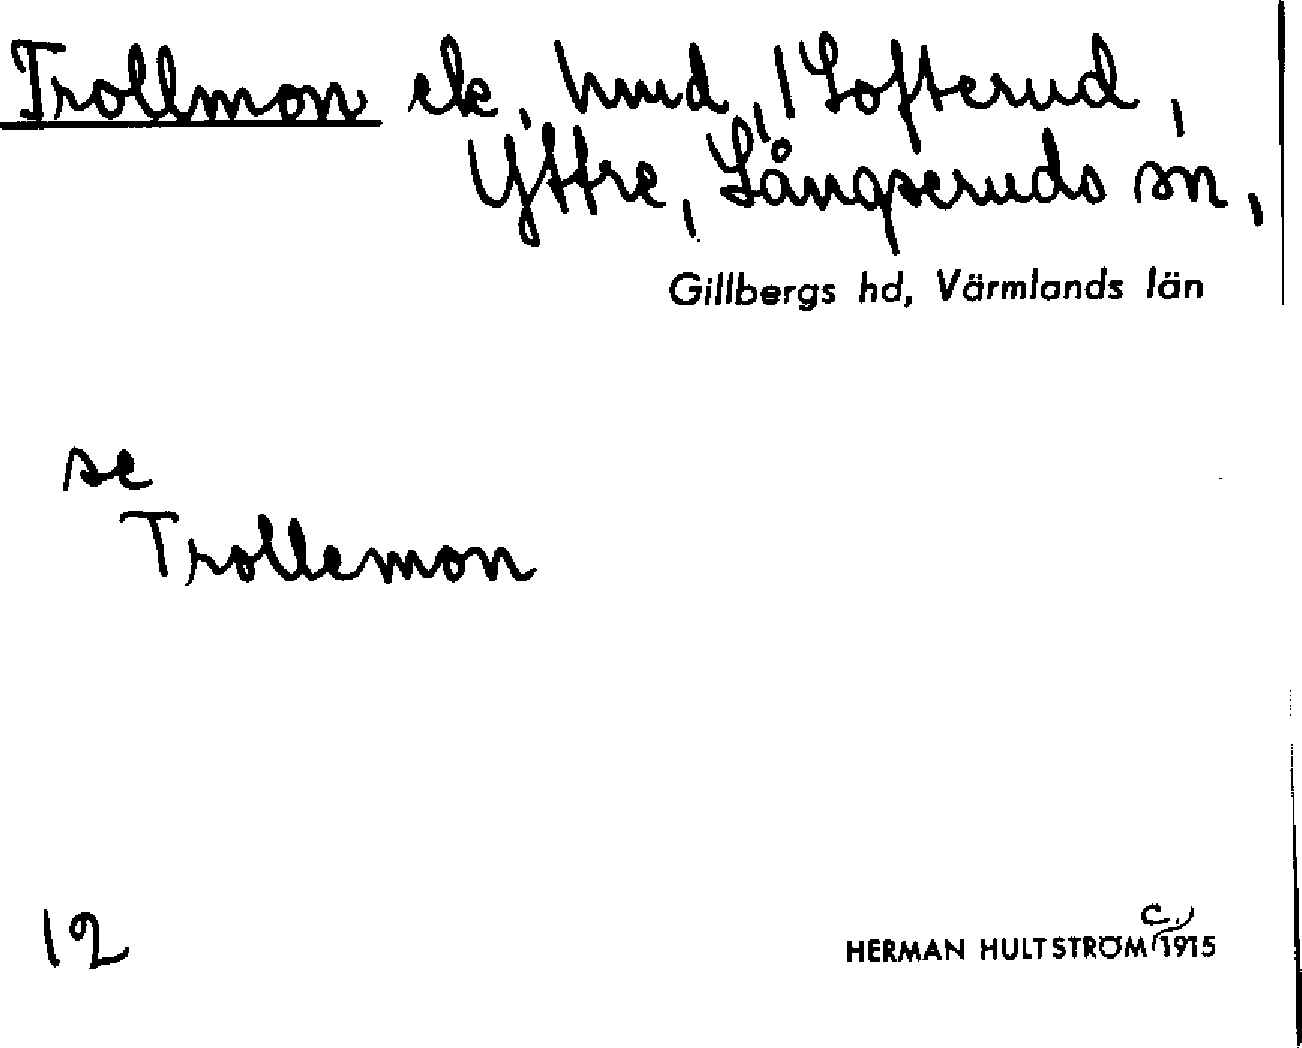 Trollmon ek, hmd, / Lofterud,
Yttre, Långseruds sn,
Gillbergs hd, Värmlands län
se
Trollemon
12
HERMAN HULTSTRÖM C. 1915